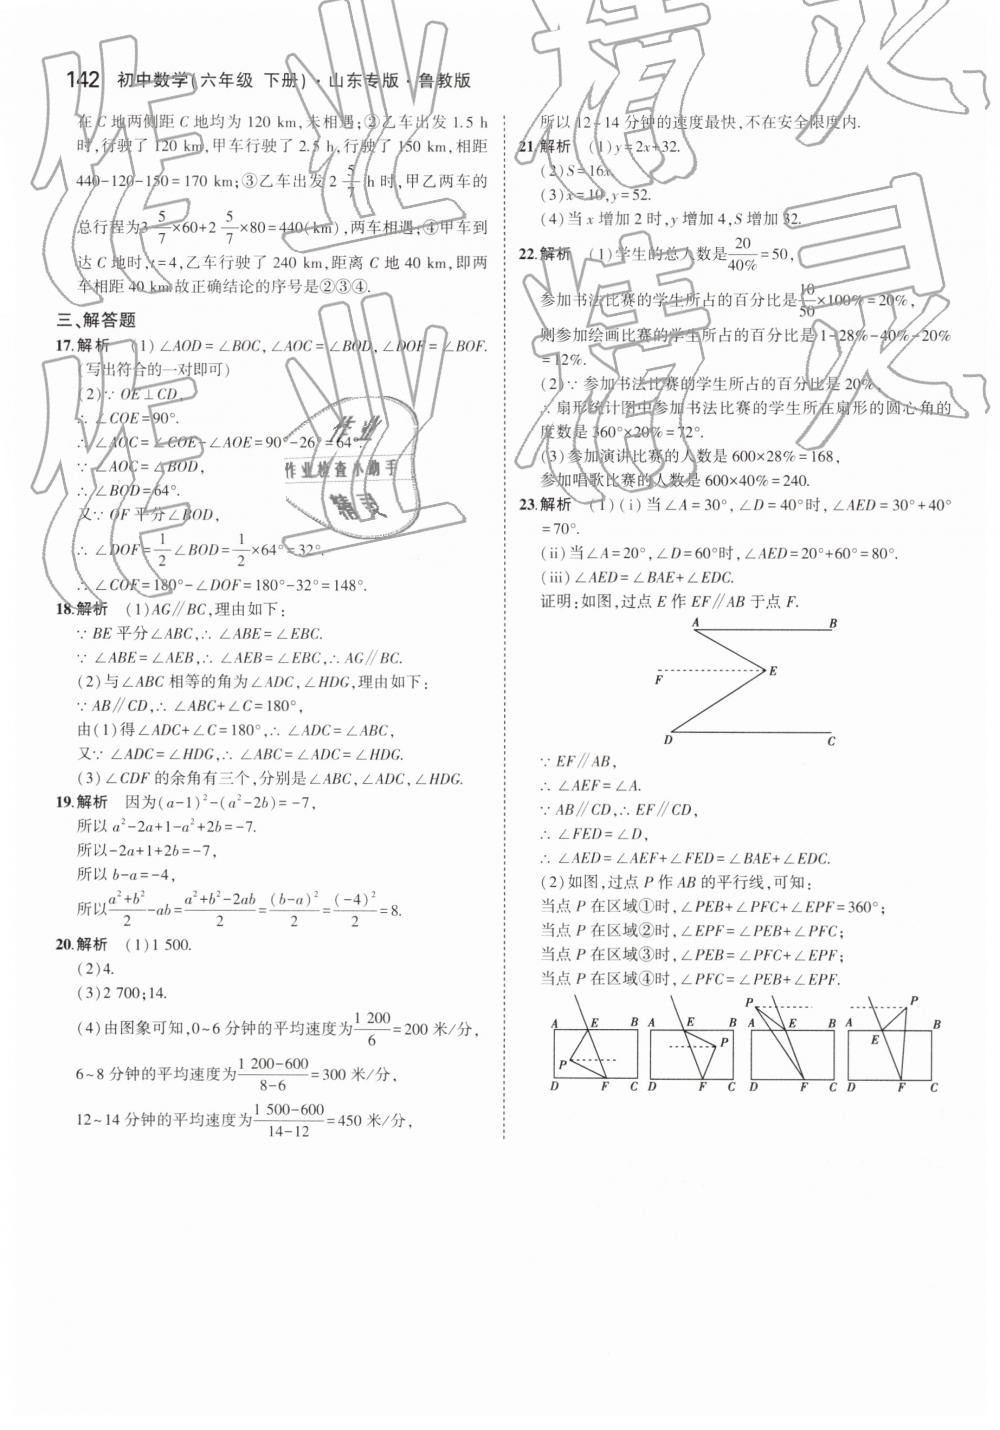 142 初中数学(六年级 下册)·山东专版·鲁教版
在 C 地两侧距 C 地均为 120 km,未相遇;②乙车出发 1.5 h
时,行驶了 120 km,甲车行驶了 2.5 h,行驶了 150 km,相距
440-120-150=170 km;③乙车出发 2 5/7 h 时,甲乙两车的
总行程为3 5/7 ×60+2 5/7 ×80=440(km),两车相遇;④甲车到
达 C 地时,t=4,乙车行驶了 240 km,距离 C 地 40 km,即两
车相距 40 km.故正确结论的序号是②③④.
三、解答题
17.解析 (1)∠AOD=∠BOC,∠AOC=∠BOD,∠DOF=∠BOF.
(写出符合的一对即可)
(2)∵ OE⊥CD,
∴ ∠COE=90°.
∴ ∠AOC=∠COE-∠AOE=90°-26°=64°.
∵ ∠AOC=∠BOD,
∴ ∠BOD=64°.
又∵ OF 平分∠BOD,
∴ ∠DOF=1/2∠BOD=1/2×64°=32°.
∴ ∠COF=180°-∠DOF=180°-32°=148°.
18.解析 (1)AG∥BC,理由如下:
∵ BE 平分∠ABC,∴ ∠ABE=∠EBC.
∵ ∠ABE=∠AEB,∴ ∠AEB=∠EBC,∴ AG∥BC.
(2)与∠ABC 相等的角为∠ADC,∠HDG,理由如下:
∵ AB∥CD,∴ ∠ABC+∠C=180°,
由(1)得∠ADC+∠C=180°,∴ ∠ADC=∠ABC,
又∵ ∠ADC=∠HDG,∴ ∠ABC=∠ADC=∠HDG.
(3)∠CDF 的余角有三个,分别是∠ABC,∠ADC,∠HDG.
19.解析 因为(a-1)²-(a²-2b)=-7,
所以 a²-2a+1-a²+2b=-7.
所以-2a+1+2b=-7,
所以 b-a=-4,
所以(a²+b²)/2-ab=(a²+b²-2ab)/2=(b-a)²/2=(-4)²/2=8.
20.解析 (1)1 500.
(2)4.
(3)2 700;14.
(4)由图象可知,0~6 分钟的平均速度为1 200/6=200 米/分,
6~8 分钟的平均速度为(1 200-600)/(8-6)=300 米/分,
12~14 分钟的平均速度为(1 500-600)/(14-12)=450 米/分,
所以 12~14 分钟的速度最快,不在安全限度内.
21.解析 (1)y=2x+32.
(2)S=16x.
(3)x=10,y=52.
(4)当 x 增加 2 时,y 增加 4,S 增加 32.
22.解析 (1)学生的总人数是20/40%=50,
参加书法比赛的学生所占的百分比是10/50×100%=20%,
则参加绘画比赛的学生所占的百分比是 1-28%-40%-20%
=12%.
(2)∵ 参加书法比赛的学生所占的百分比是 20%,
∴ 扇形统计图中参加书法比赛的学生所在扇形的圆心角的
度数是 360°×20%=72°.
(3)参加演讲比赛的人数是 600×28%=168,
参加唱歌比赛的人数是 600×40%=240.
23.解析 (1)(i)当∠A=30°,∠D=40°时,∠AED=30°+40°
=70°.
(ii)当∠A=20°,∠D=60°时,∠AED=20°+60°=80°.
(iii)∠AED=∠BAE+∠EDC.
证明:如图,过点 E 作 EF∥AB 于点 F.
A B
F E
D C
∵ EF∥AB,
∴ ∠AEF=∠A.
∵ AB∥CD,∴ EF∥CD,
∴ ∠FED=∠D,
∴ ∠AED=∠AEF+∠FED=∠BAE+∠EDC.
(2)如图,过点 P 作 AB 的平行线,可知:
当点 P 在区域①时,∠PEB+∠PFC+∠EPF=360°;
当点 P 在区域②时,∠EPF=∠PEB+∠PFC;
当点 P 在区域③时,∠PEB=∠PFC+∠EPF;
当点 P 在区域④时,∠PFC=∠PEB+∠EPF.
P P
A E B A E B A E B A E B
P P
D F C D F C D F C D F C
作业
作业检查小助手
精灵
作业精灵
作业精灵